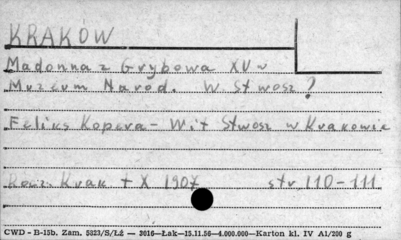 KRAKÓW
Madonna z Grybowa XV w
Muzeum Narod. W. Stwosz?
Feliks Kopera - Wit Stwosz w Krakowie
Rocz. Krak t X 1907 str 110-111
CWD - B-15b. Zam. 5823/S/Łż — 3016—Łak—15.11.56—4.000.000—Karton kl. IV A1/200 g